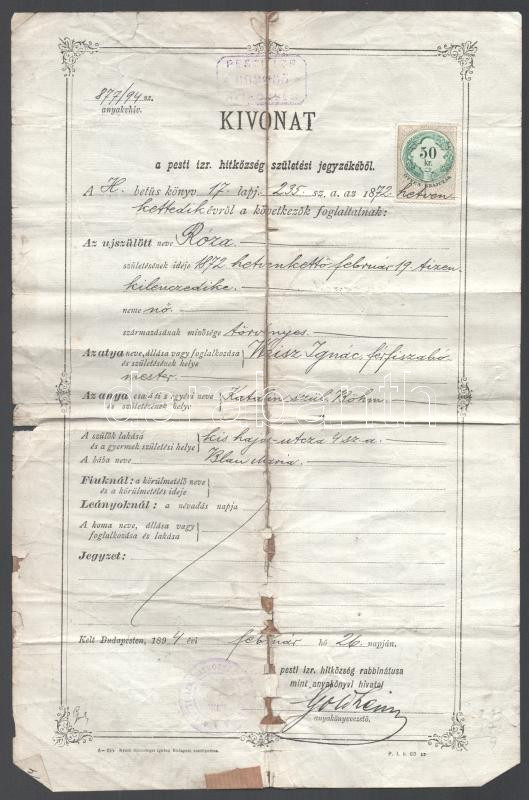 877/94 sz.
anyakhiv.
KIVONAT
a pesti izr. hitközség születési jegyzékéből.
50
kr.
A H. betüs könyv 17. lapj. 235. sz. a. az 1872 hetven
kettedik évről a következők foglaltatnak:
Az ujszülött neve Róza.
születésének ideje 1872 hetvenkettő február 19 tizen
kilenczedike.
neme nő.
származásának minősége törvényes.
Az atya neve, állása vagy foglalkozása és születésének helye Weisz Ignác, férfiszabó
mester.
Az anya család s egyéb neve születésének helye Katalin szül. Böhm.
A szülők lakása és a gyermek születési helye kis hajó-utcza 9 sz. a.
A bába neve Blau Mária.
Fiuknál: a körülmetélő neve és a körülmetélés ideje
Leányoknál: a névadás napja
A koma neve, állása vagy foglalkozása és lakása
Jegyzet:
Kelt Budapesten, 1894 évi február hó 26. napján.
pesti izr. hitközség rabbinátusa
mint anyakönyvi hivatal
anyakönyvvezető.